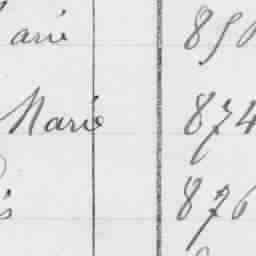 arie 850
Marie 874
s 876